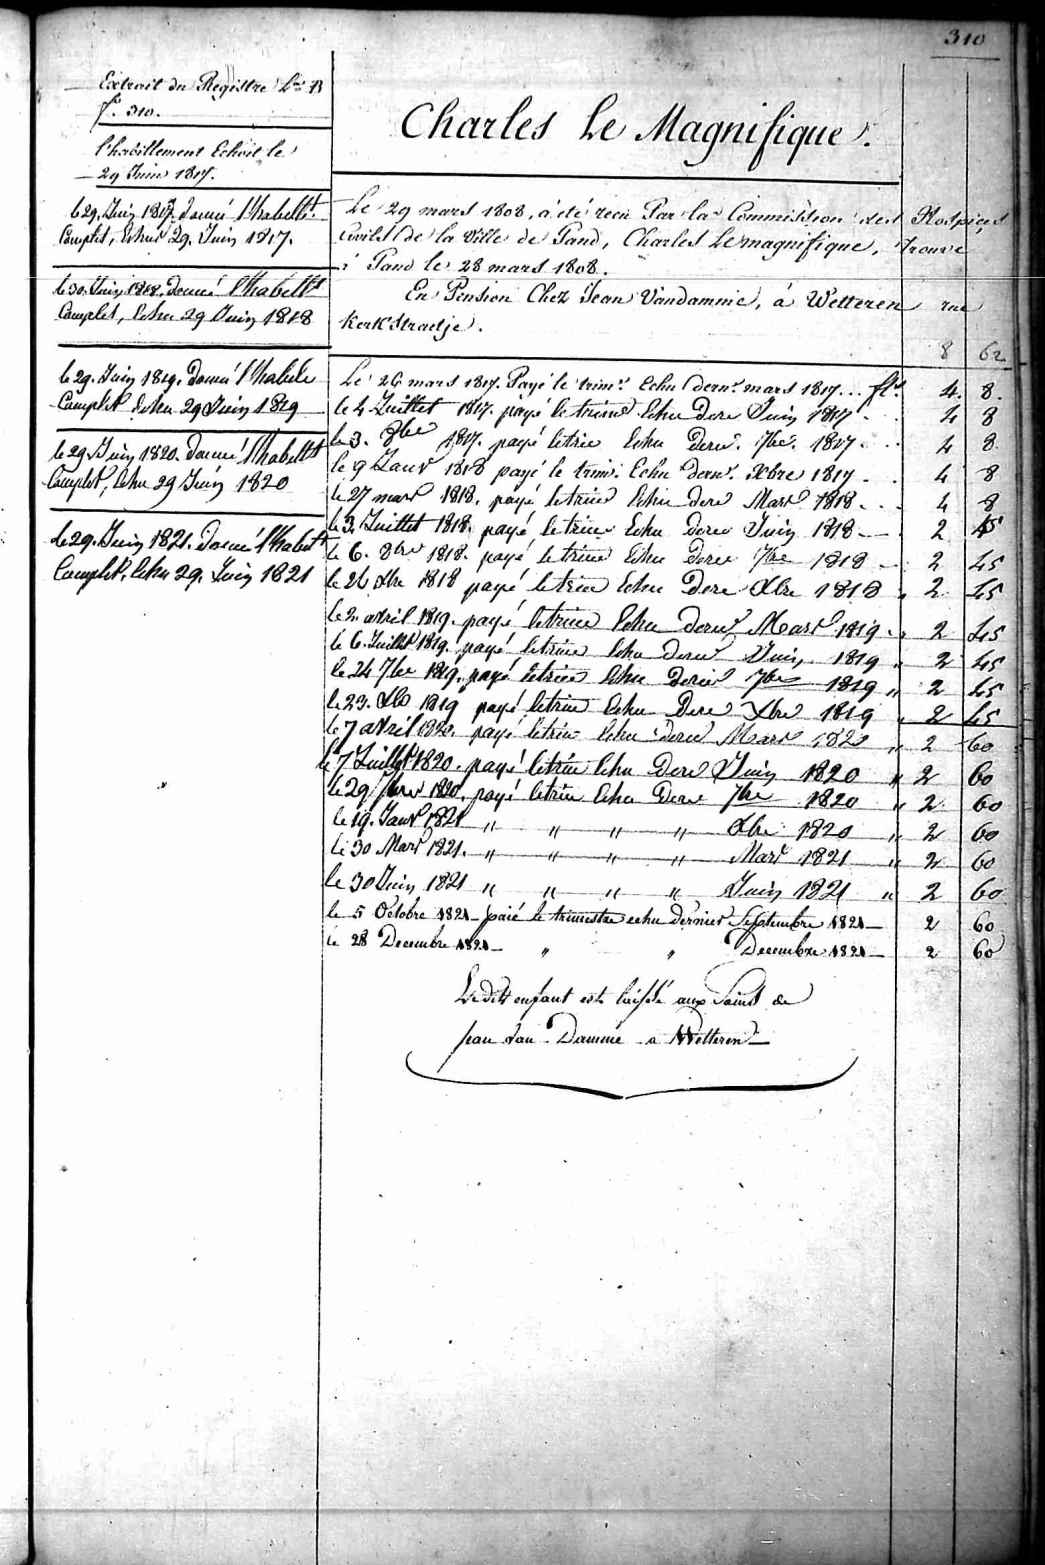 310
Extrait du Registre L.re B
f.o 310.
l'habillement Echoit le
29 Juin 1817.
le 29. Juin 1817. donné l'habellt.
Complet, Echu 29. Juin 1817.
le 30. Juin 1818. donné l'habellt
Complet, Echu 29 Juin 1818
le 29. Juin 1819. donné l'habele
Complet Echu 29 Juin 1819
le 29. Juin 1820. donné l'habellt
Complet, Echu 29 Juin 1820
le 29. Juin 1821. donné l'habellt
Complet, Echu 29. Juin 1821
Charles Le Magnifique.
Le 29 mars 1808, a été recu Par la Commission des Hospices
Civiles de la Ville de Gand, Charles Le magnifique, Trouvé
à Gand le 28 mars 1808.
En Pension Chez Jean Vandamme, á Wetteren rue
Kerkstraetje.
8 62
Le 26 mars 1817. Payé le trim.e Echu dern.r mars 1817... fl.s 4. 8.
le 4 Juillet 1817. payé le trime Echu dere Juin 1817 4 8
le 3. 8bre 1817. payé le trie Echu dern. 7bre. 1817 4 8
le 9 Janv 1818 payé le trim. Echu dern. Xbre 1817 4 8
le 27 mars 1818. payé le trime Echu dere Mars 1818 4 8
le 3 Juillet 1818 payé le trime Echu dere Juin 1818 2 45
le 6. 8bre 1818. payé le trime Echu dere 7bre 1818 2 45
le 26 Xbre 1818 payé le trie Echu Dere Xbre 1818 " 2 45
le 2. avril 1819. payé le trime Echu dern.r Mars 1819 " 2 45
le 6. Juillet 1819. payé le trime Echu dern.r Juin 1819 " 2 45
le 24 7bre 1819. payé le trime Echu dernier 7bre 1819 " 2 45
le 23. Xbre 1819 payé le trime Echu Dere Xbre 1819 " 2 45
le 7 avril 1820. payé le trie Echu dern.r Mars 1820 " 2 60
le 7 Juillet 1820. payé le trie Echu Dere Juin 1820 " 2 60
le 29 7bre 1820. payé le trie Echu Dere 7bre 1820 " 2 60
le 19. Janvr 1821 " " " " Xbre 1820 " 2 60
le 30 Mars 1821. " " " " Mars 1821 " 2 60
le 30 Juin 1821 " " " " Juin 1821 " 2 60
le 5 Octobre 1821 - paié le trimestre echu dernier Septembre 1821 - 2 60
le 28 Decembre 1821 - " " Decembre 1821 - 2 60
Le dit enfant est laissé aux Soins de
jean van Damme a Wetteren